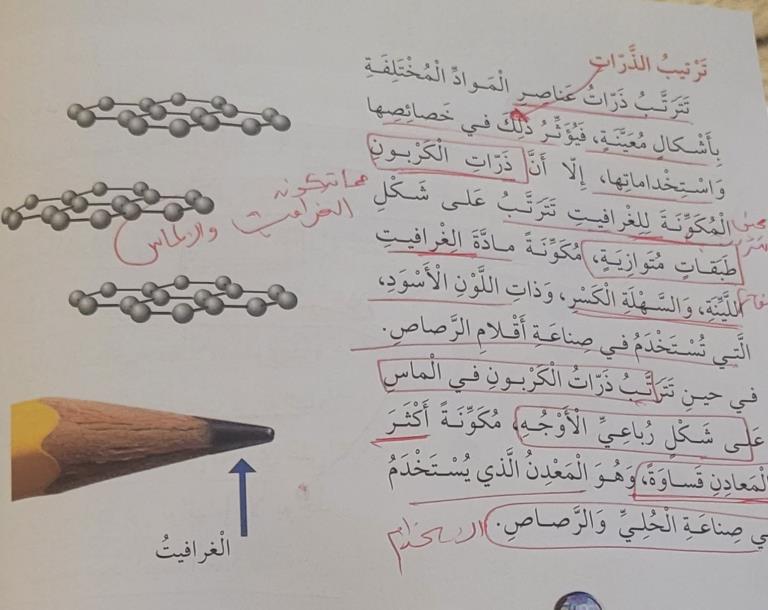 تَرْتيبُ الذَّرّاتِ
تَتَرَتَّبُ ذَرّاتُ عَناصِرِ الْمَوادِّ الْمُخْتَلِفَةِ
بِأَشْكالٍ مُعَيَّنَةٍ، فَيُؤَثِّرُ ذلِكَ في خَصائِصِها
وَاسْتِخْداماتِها، إِلّا أَنَّ ذَرّاتِ الْكَرْبونِ
الْمُكَوِّنَةَ لِلْغْرافيتِ تَتَرَتَّبُ عَلى شَكْلِ
طَبَقاتٍ مُتَوازِيَةٍ، مُكَوِّنَةً مادَّةَ الْغْرافيتِ
اللَّيِّنَةِ، وَالسَّهْلَةِ الْكَسْرِ، وَذاتِ اللَّوْنِ الْأَسْوَدِ،
الَّتي تُسْتَخْدَمُ في صِناعَةِ أَقْلامِ الرَّصاصِ.
في حينِ تَتَرَتَّبُ ذَرّاتُ الْكَرْبونِ في الْماسِ
عَلى شَكْلٍ رُباعِيِّ الْأَوْجُهِ، مُكَوِّنَةً أَكْثَرَ
الْمَعادِنِ قَساوَةً، وَهُوَ الْمَعْدِنُ الَّذي يُسْتَخْدَمُ
في صِناعَةِ الْحُلِيِّ وَالرَّصاصِ.
الاستخدام
مما تتكون
الغرافيت والالماس
الْغرافيتُ